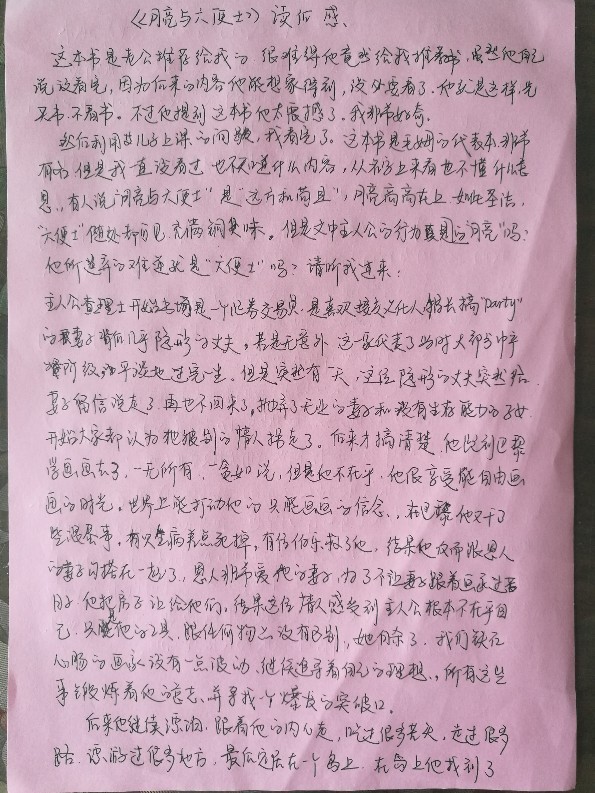 《《月亮与六便士》读后感、
这本书是老公推荐给我的 很难得他竟然给我推荐书，虽然他自己
说没看完，因为后来的内容他能想象得到，没必要看了。他就是这样，先
买书不看书。不过他提到这本书他太震撼了。我非常好奇。
然后利用女儿上课的间隙，我看完了。这本书是毛姆的代表本、非常
有名 但是我一直没看过 也不知道什么内容，从名字上来看也不懂什么意
思。有人说"月亮与六便士"是"远方和苟且"，月亮高高在上 如此圣洁，
"六便士"随处却可见 充满铜臭味。但是文中主人公的行为真是的"月亮"吗?
他所遗弃的难道就是"六便士"吗? 请听我道来：
主人公查理士开始出场是一个证券交易员、是喜欢接交文化人 擅长搞"party"
的妻子背后几乎隐形的丈夫，若是无意外 这一家代表了当时大部分中
阶级的平淡地过完一生。但是突然有一天，这位隐形的丈夫突然给
妻子留信说走了 再也不回来了，抛弃了无业的妻子和没有生存能力的子女
开始大家都认为他跟别的情人跑了。后来才搞清楚 他跑到巴黎
学画画去了，一无所有、一贫如洗，但是他不在乎、他很享受能自由画
画的时光。世界上能打动他的只能画画的信念、，在巴黎他又干了
些混蛋事。有次生病差点死掉，有位伯乐救了他、结果他反而跟恩人
的妻子勾搭在一起了、恩人非常爱他的妻子，为了不让妻子跟着画家过苦
日子 他把房子让给他们，结果这位情人感受到主人公根本不在乎自
己、只是他的工具、跟任何物品没有区别，她自杀了、我们铁石
心肠的画家没有一点波动、继续追寻着自己的理想.，所有这些
事锻炼着他的意志、并寻找一个爆发的突破口。
后来他继续漂泊、跟着他的内心走，吃过很多苦头，走过很多
路、漂游过很多地方，最后定居在一个岛上、在岛上他找到了